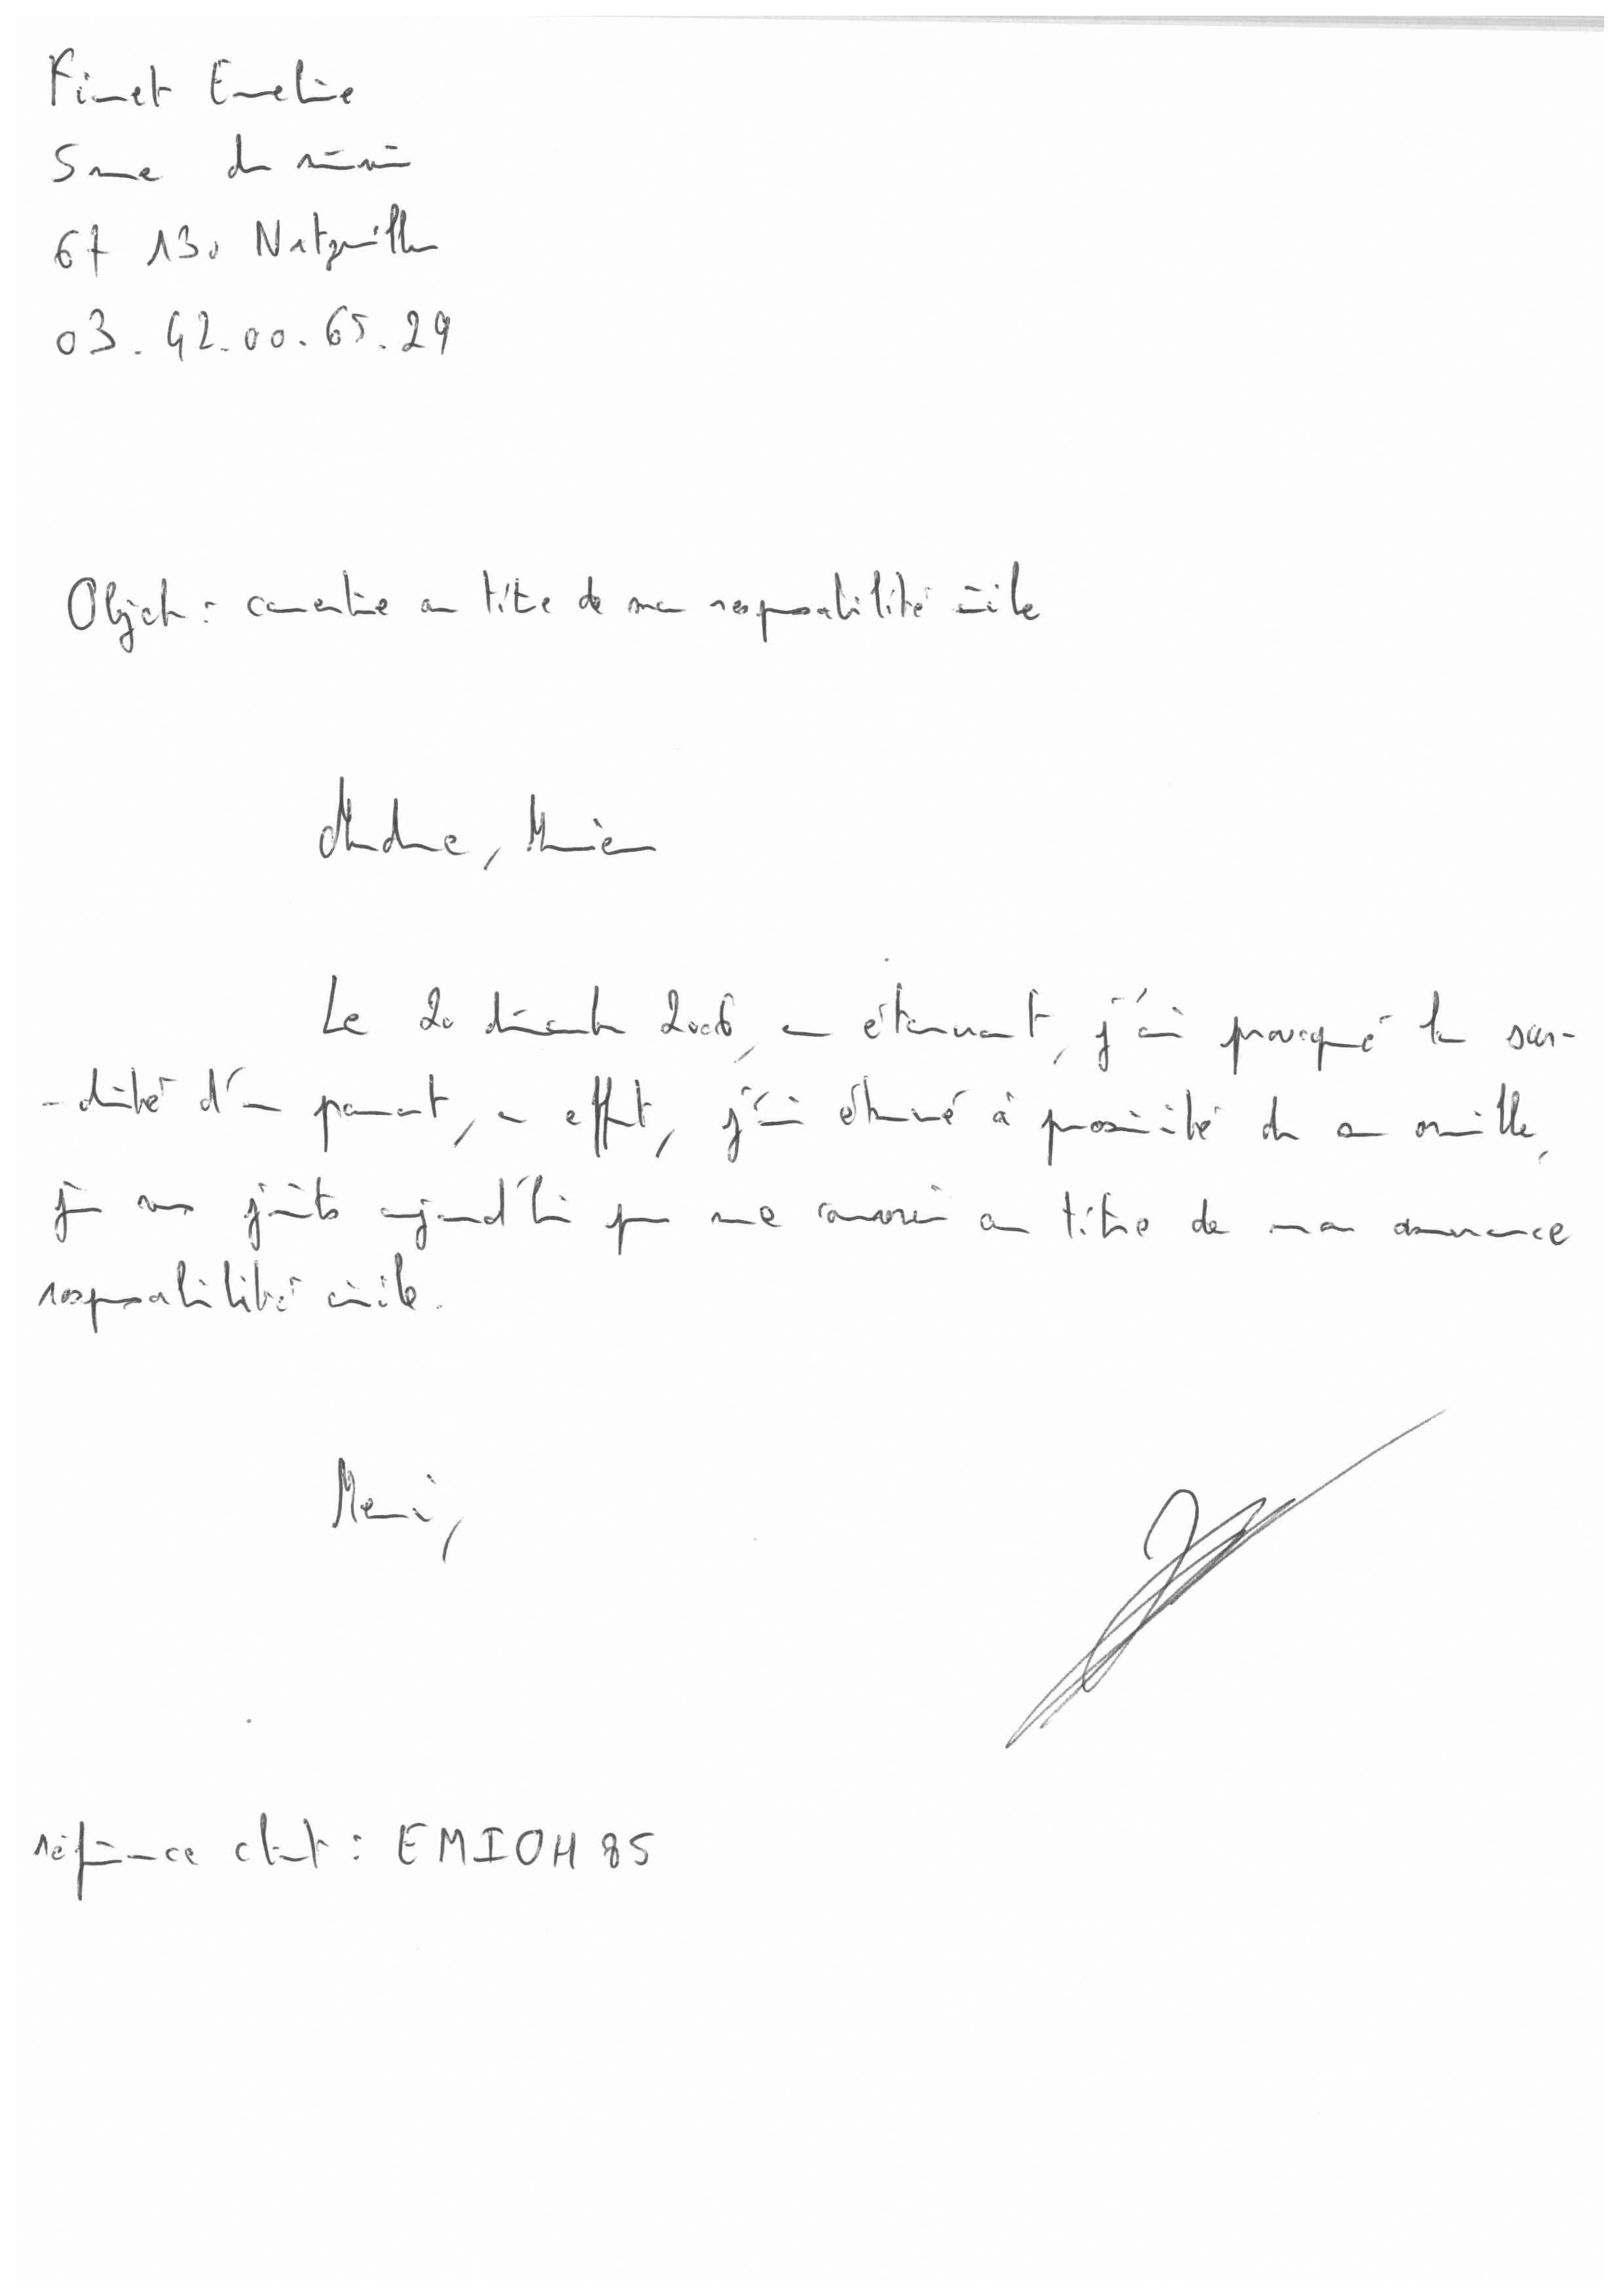 Finet Emeline
5 rue du
67 130 Natzwiller
03.42.00.65.29
Objet : couverture au titre de ma responsabilité civile
Madame, Monsieur
Le 20 décembre 2006, en éternuant, j'ai provoqué la sur-
-dité d'un passant, en effet, j'ai éternué à proximité de son oreille,
je vous aujourd'hui pour me couvrir au titre de mon assurance
responsabilité civile.
Merci,
référence client : EMIOH 85